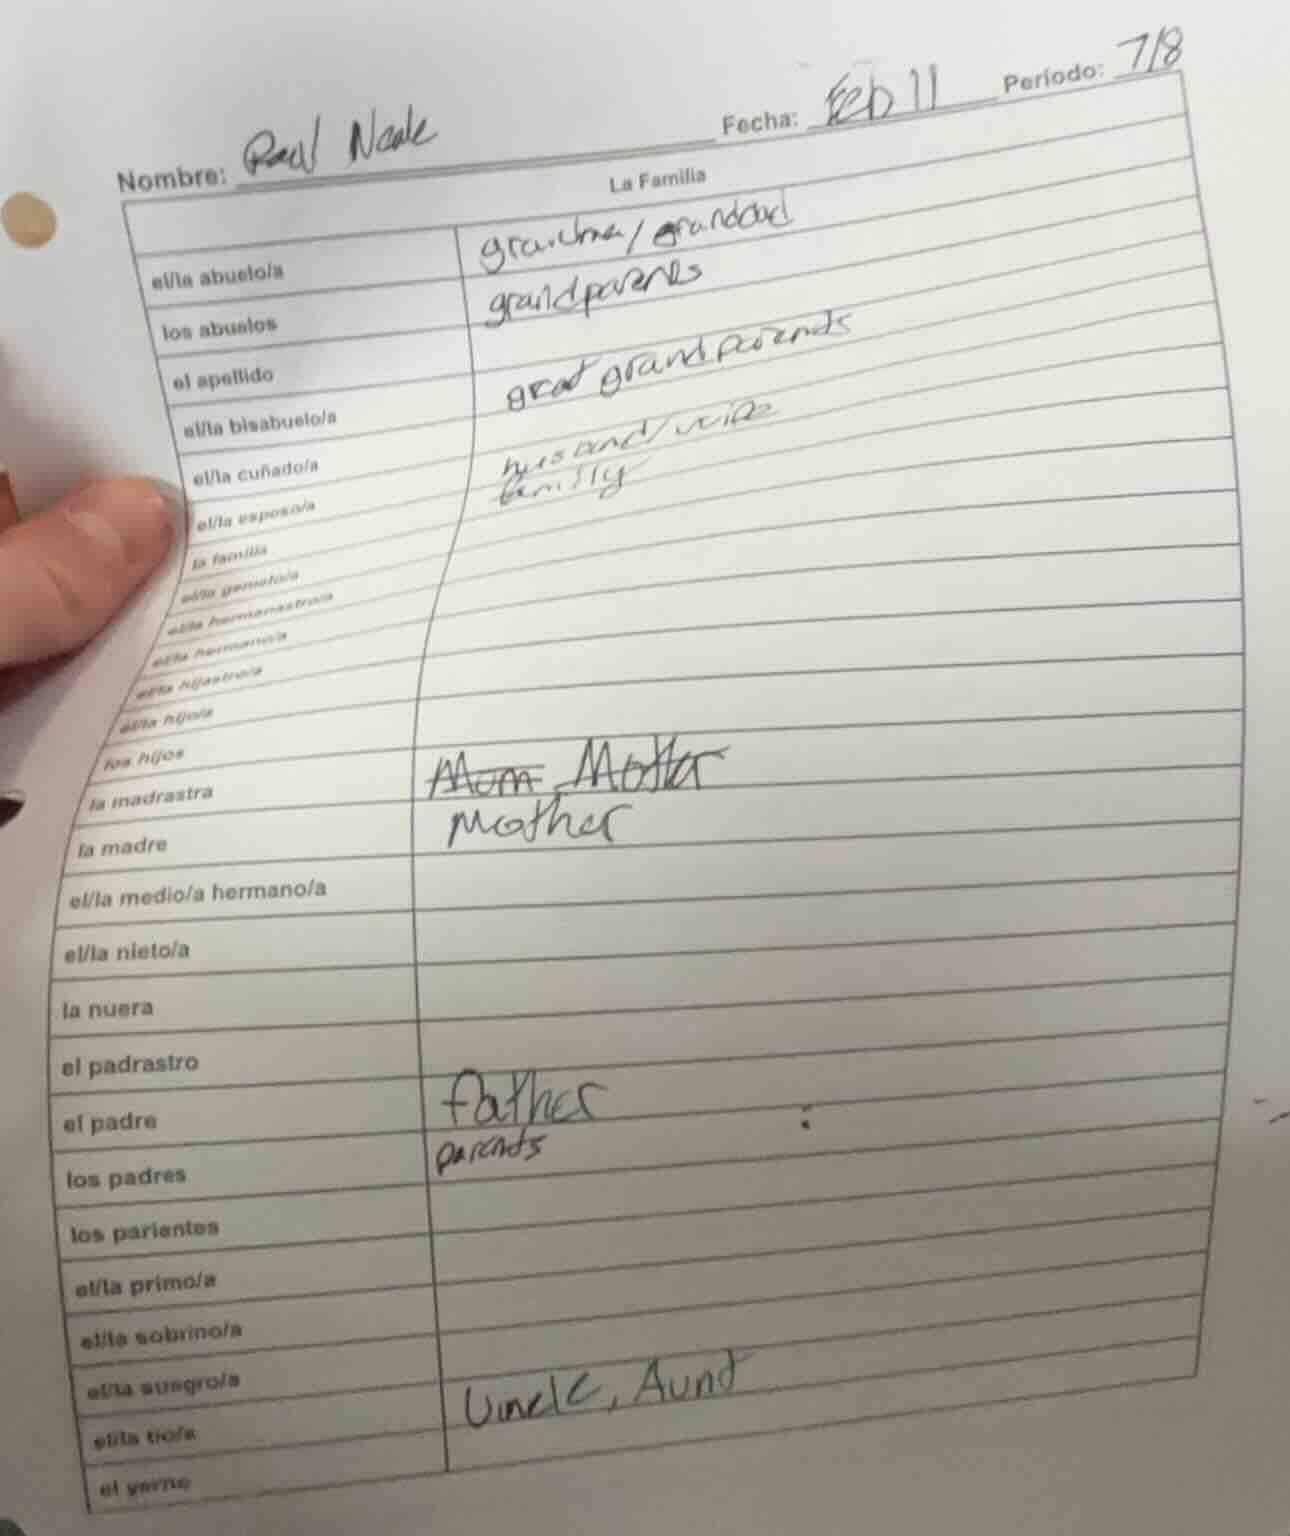 Nombre: Paul Neale Fecha: Feb 11 Período: 7/8
La Familia
el/la abuelo/a grandma/granddad
los abuelos grandparents
el apellido
el/la bisabuelo/a great grandparents
el/la cuñado/a
el/la esposo/a husband/wife
la familia family
el/la gemelo/a
el/la hermanastro/a
el/la hermano/a
el/la hijastro/a
el/la hijo/a
los hijos
la madrastra Mum Mother
la madre Mother
el/la medio/a hermano/a
el/la nieto/a
la nuera
el padrastro
el padre father
los padres parents
los parientes
el/la primo/a
el/la sobrino/a
el/la suegro/a
el/la tío/a Uncle, Aunt
el yerno